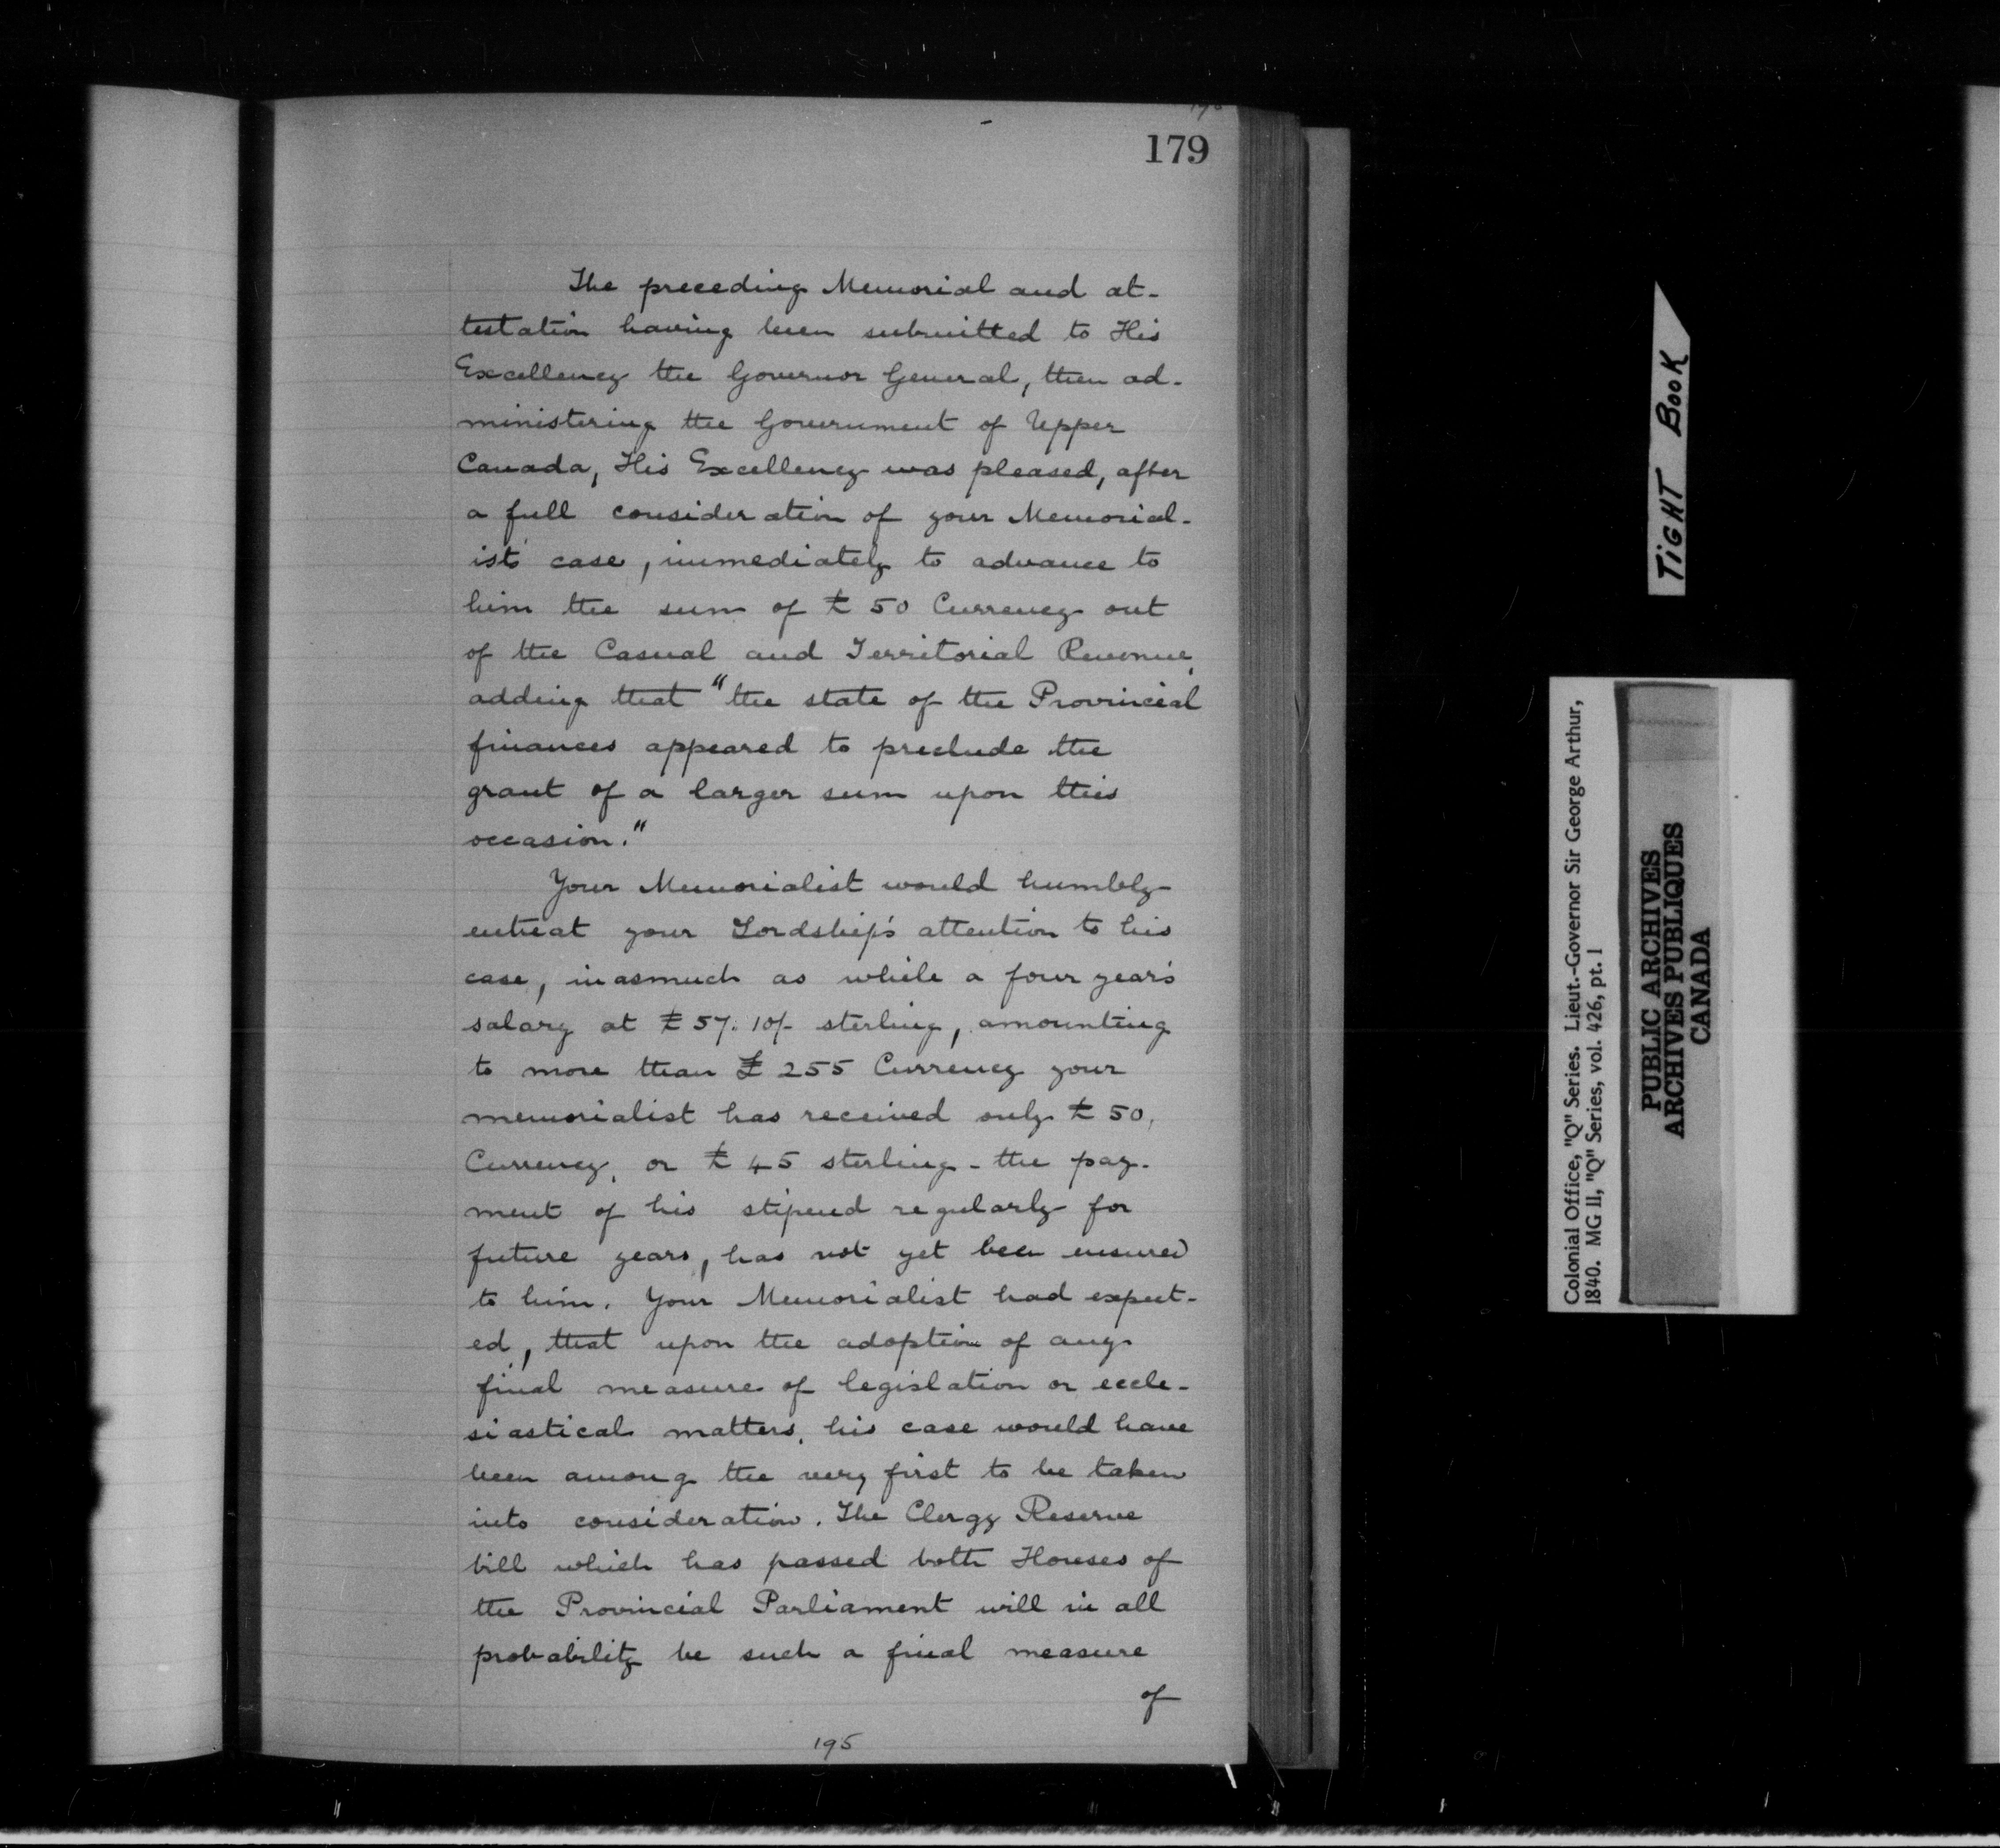 179
The preceding Memorial and at-
testation having been submitted to His
Excellency the Governor General, then ad-
ministering the Government of Upper
Canada, His Excellency was pleased, after
a full consideration of your Memorial-
ist's case, immediately to advance to
him the sum of £50 Currency out
of the Casual and Territorial Revenue,
adding that "the state of the Provincial
finances appeared to preclude the
grant of a larger sum upon this
occasion."
Your Memorialist would humbly
entreat your Lordship's attention to his
case, inasmuch as while a four year's
salary at £57. 10/- sterling, amounting
to more than £255 Currency your
memorialist has received only £50,
Currency, or £45 sterling - the pay-
ment of his stipend regularly for
future years, has not yet been ensured
to him. Your Memorialist had expect-
ed, that upon the adoption of any
final measure of legislation or eccle-
siastical matters, his case would have
been among the very first to be taken
into consideration. The Clergy Reserve
bill which has passed both Houses of
the Provincial Parliament will in all
probability be such a final measure
of
195
TIGHT BOOK
Colonial Office, "Q" Series. Lieut.-Governor Sir George Arthur,
1840. MG 11, "Q" Series, vol. 426, pt. 1
PUBLIC ARCHIVES
ARCHIVES PUBLIQUES
CANADA